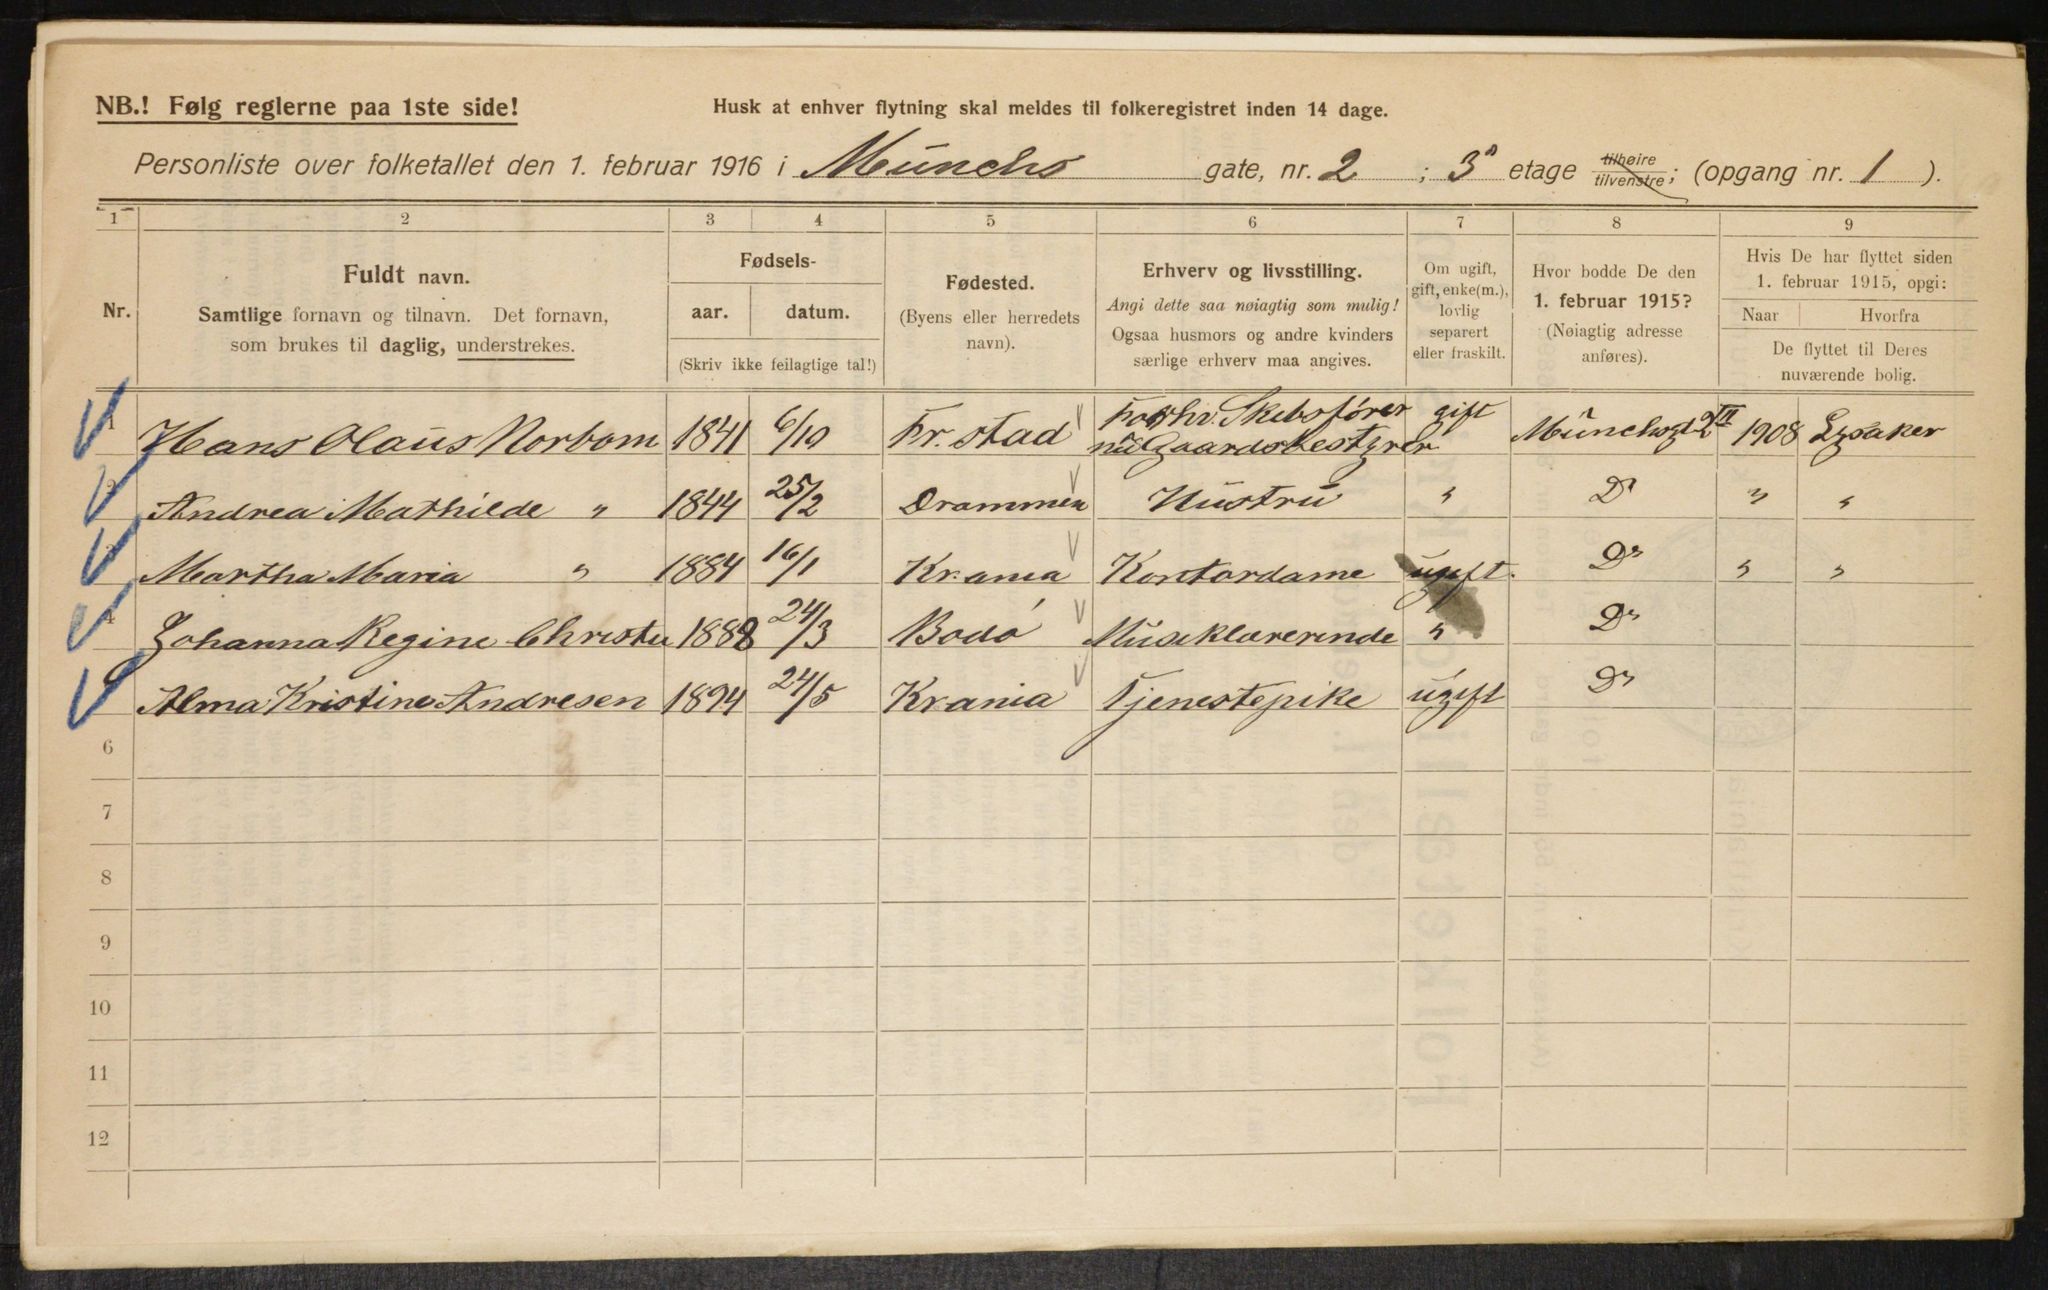 NB.! Følg reglerne paa 1ste side!
Husk at enhver flytning skal meldes til folkeregistret inden 14 dage.
Personliste over folketallet den 1. februar 1916 i Münchs gate, nr. 2 ; 3 etage tilhøire tilvenstre; (opgang nr. 1 ).
1 2 3 4 5 6 7 8 9
Nr.
Fuldt navn.
Samtlige fornavn og tilnavn. Det fornavn,
som brukes til daglig, understrekes.
Fødsels-
aar. datum.
(Skriv ikke feilagtige tal!)
Fødested.
(Byens eller herredets
navn).
Erhverv og livsstilling.
Angi dette saa nøiagtig som mulig!
Ogsaa husmors og andre kvinders
særlige erhverv maa angives.
Om ugift,
gift, enke(m.),
lovlig
separert
eller fraskilt.
Hvor bodde De den
1. februar 1915?
(Nøiagtig adresse
anføres).
Hvis De har flyttet siden
1. februar 1915, opgi:
Naar Hvorfra
De flyttet til Deres
nuværende bolig.
1 Hans Olaus Norbom 1841 6/10 Fr.stad Forhv. Skibsfører gift Münchsgt 2 III 1908 Lysaker
nu Gaardsbestyrer
2 Andrea Mathilde " 1844 25/2 Drammen Hustru " Do " "
3 Martha Maria " 1884 16/1 Kr.ania Kontordame ugift. Do " "
4 Johanna Regine Christie 1888 24/3 Bodó Musiklærerinde " Do
Alma Kristine Andresen 1894 24/5 Kr.ania Tjenestepike ugift Do
6
7
8
9
10
11
12